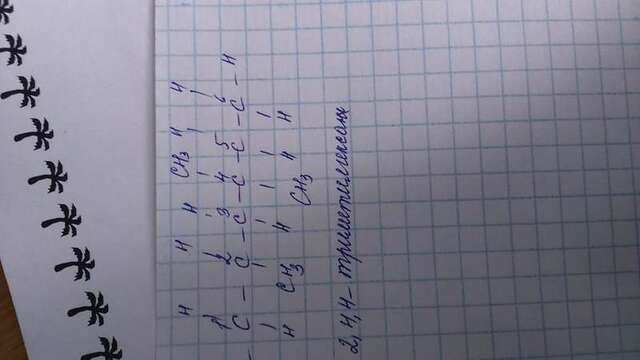 H H H CH₃ H H
1 2 3 4 5 6
- C - C - C - C - C - C - H
H CH₃ H CH₃ H H
2,4,4- триметилгексан